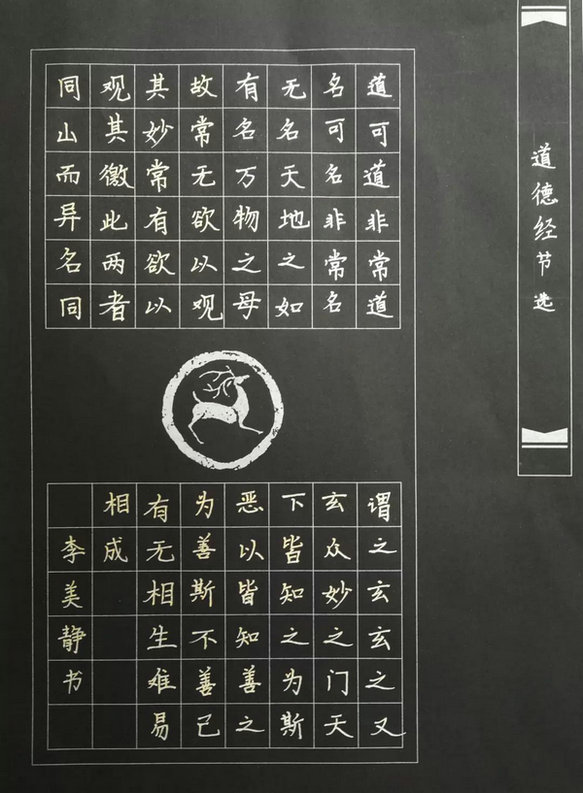 道德经节选
道可道非常道
名可名非常名
无名天地之如
有名万物之母
故常无欲以观
其妙常有欲以
观其徼此两者
同山而异名同
谓之玄玄之又
玄众妙之门天
下皆知之为斯
恶以皆知善之
为善斯不善己
有无相生难易
相成
李美静书